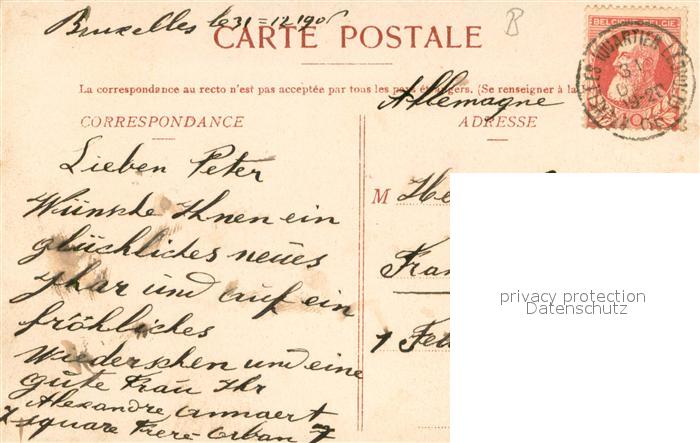 Bruxelles le 31=12.190
CARTE POSTALE
B
BELGIQUE BELGIE
La correspondance au recto n'est pas acceptée par tous les pays étrangers. (Se renseigner à la
Allemagne
CORRESPONDANCE
ADRESSE
Lieben Peter
Wünsche Ihnen ein
glückliches neues
Yhar und auf ein
fröhliches
Wiedersehen und eine
gute Frau Ihr
Alexandre
7 square Frere Orban 7
M He
Fran
1 Fel
privacy protection
Datenschutz